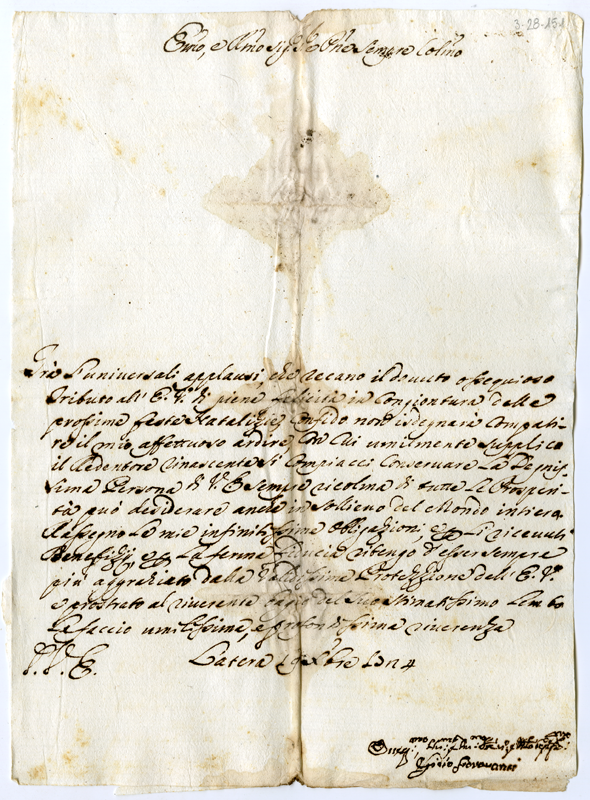 3-28-151
Emo, e Rmo Sig.re Pne sempre Colmo
Trà l'universali applausi, che recano il dovuto ossequioso
tributo all' E. V. di piene felicità in congiontura delle
prossime feste Natalizie, confido non isdegnarà compati-
re il mio affettuoso ardire, con cui umilmente supplico
il Redentore rinascente si compiacci conservare la Degnis-
sima Persona di V. E. sempre ricolma di tutte le prosperi-
tà può desiderare anche in sollievo del Mondo intiero.
Rassegno le mie infinitissime obligazioni, e li ricevuti
Benefizj, e la ferma fiducia ritengo d'esser sempre
più aggraziato dalla validissima Protezzione dell' E. V.
e prostrato al riverente bacio del suo stimatissimo lembo
la faccio umilissima, e profondissima riverenza
D. V. E. Latera 19 Xbre 1724